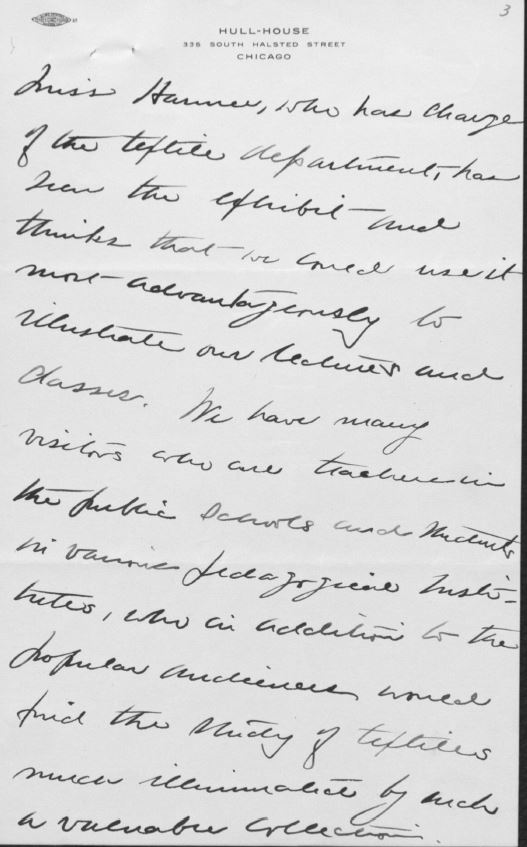 3
HULL-HOUSE
335 SOUTH HALSTED STREET
CHICAGO
Miss Hannee, who has charge
of the textile department, has
seen the exhibit and
thinks that we could use it
most advantageously to
illustrate our lectures and
classes. We have many
visitors who are teachers in
the public schools and students
in various pedagogical Insti-
tutes, who in addition to the
popular audiences would
find the study of textiles
much illuminated by such
a valuable collection.